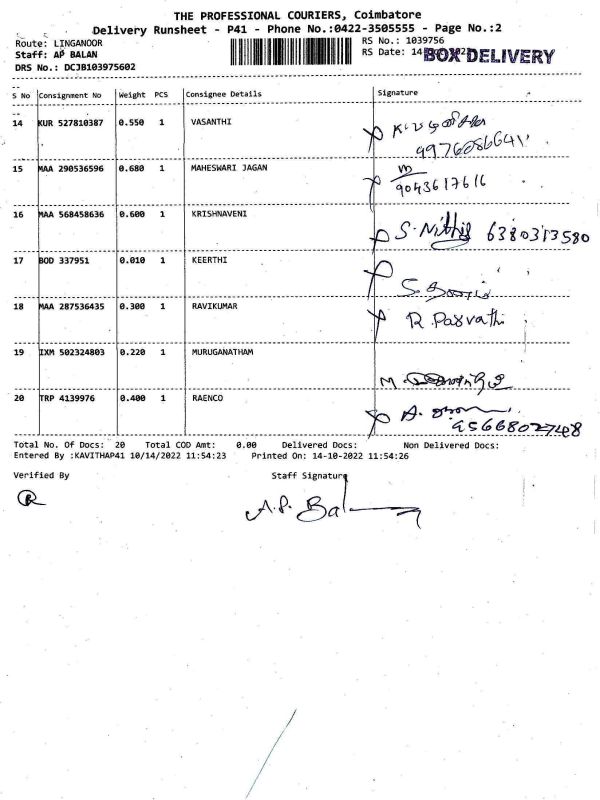 THE PROFESSIONAL COURIERS, Coimbatore
Delivery Runsheet - P41 - Phone No.:0422-3505555 - Page No.:2
Route: LINGANOOR RS No.: 1039756
Staff: AP BALAN RS Date: 14 BOX DELIVERY
DRS No.: DCJB103975602
S No Consignment No Weight PCS Consignee Details Signature
14 KUR 527810387 0.550 1 VASANTHI
15 MAA 290536596 0.680 1 MAHESWARI JAGAN
9043617616
16 MAA 568458636 0.600 1 KRISHNAVENI
S. Nithis 6380313580
17 BOD 337951 0.010 1 KEERTHI
18 MAA 287536435 0.300 1 RAVIKUMAR
R. Parvathi
19 IXM 502324803 0.220 1 MURUGANATHAM
20 TRP 4139976 0.400 1 RAENCO
9566802748
Total No. Of Docs: 20 Total COD Amt: 0.00 Delivered Docs: Non Delivered Docs:
Entered By :KAVITHAP41 10/14/2022 11:54:23 Printed On: 14-10-2022 11:54:26
Verified By Staff Signature
R A.P. Bal